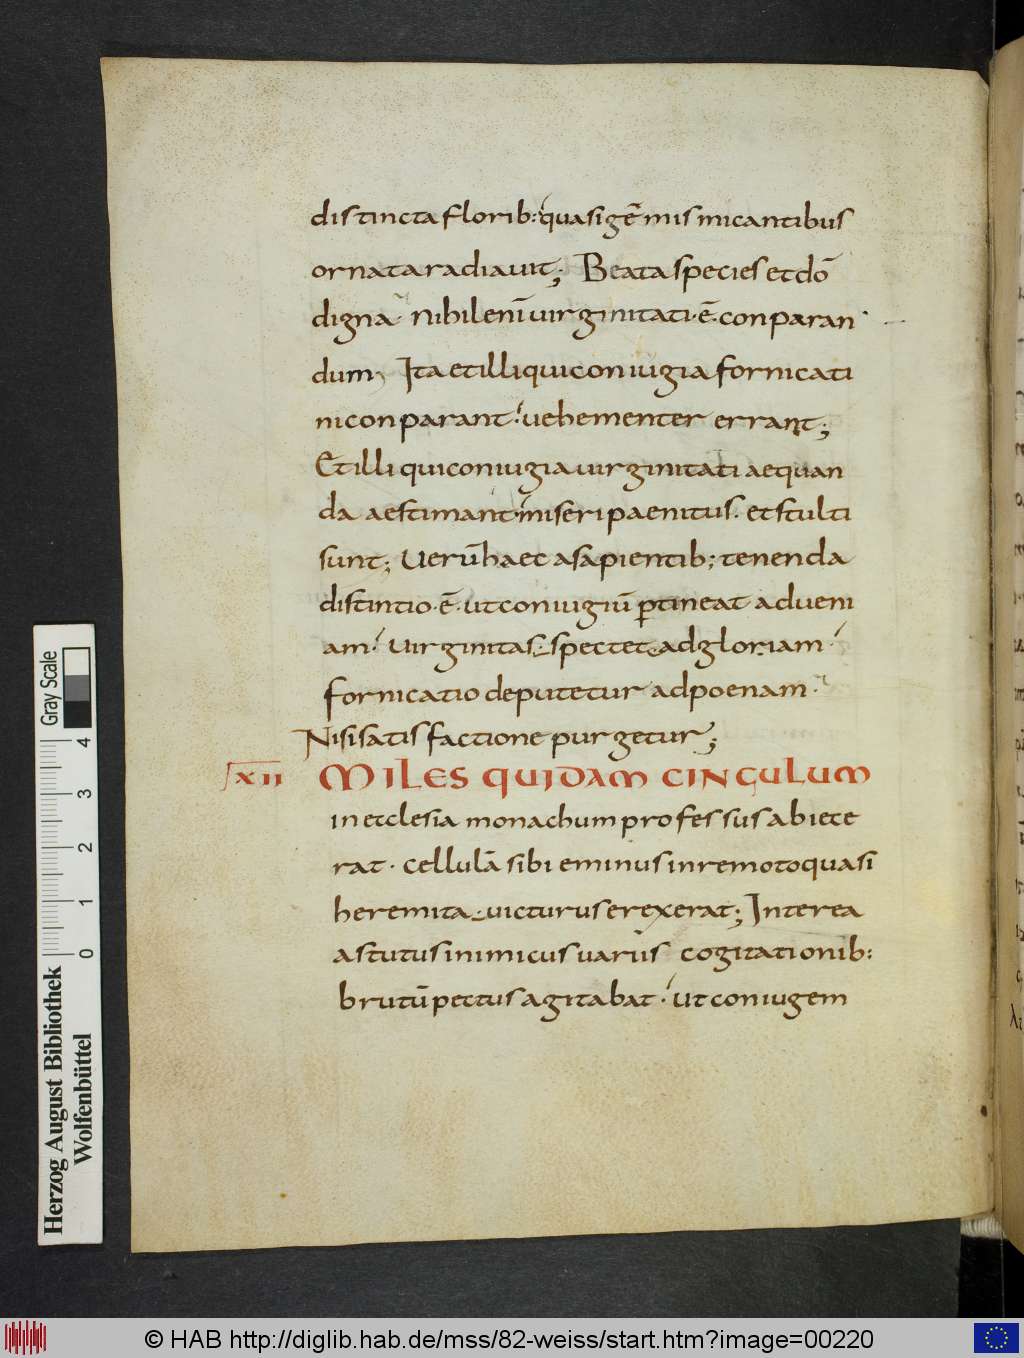 distincta florib: quasi gēmis micantibus
ornata radiauit; Beata species et dō
digna· Nihil enī uirginitati·ē·conparan
dum, Ita et illi qui coniugia fornicati
ni conparant· uehementer errant;
Et illi qui coniugia uirginitati aequan
da aestimant· miseri paenitus· et stulti
sunt; Uerū haec a sapientib; tenenda
distintio·ē·ut coniugiū ꝑtineat ad ueni
am· Uirginitas· spectet ad gloriam·
fornicatio deputetur ad poenam·
Nisi satisfactione purgetur;
XII MILES QUIDAM CINGULUM
in etclesia monachum professus abiece
rat· Cellulā sibi eminus in remoto quasi
heremita· uicturus erexerat; Interea
astutus inimicus uariis cogitationib:
brutū pectus agitabat· Ut coniugem
Gray Scale
4
3
2
1
0
Herzog August Bibliothek
Wolfenbüttel
© HAB http://diglib.hab.de/mss/82-weiss/start.htm?image=00220